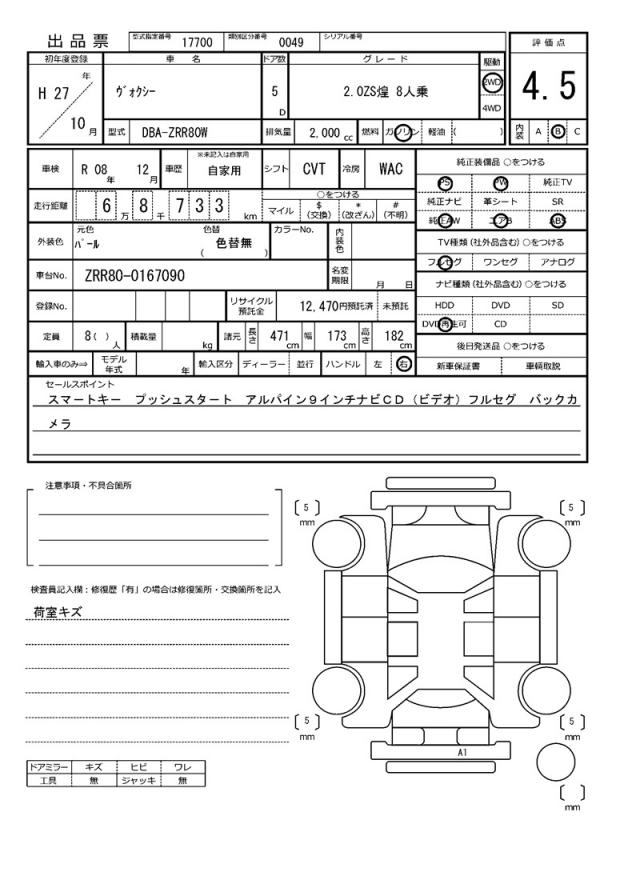 出品票
型式指定番号 17700 類別区分番号 0049 シリアル番号
評価点
4.5
内装 A B C
初年度登録 車名 ドア数 グレード 駆動
H 27 年 10 月
ヴォクシー
5 D
2.0ZS煌 8人乗
2WD
4WD
型式 DBA-ZRR80W 排気量 2,000 cc 燃料 ガソリン 軽油 ( )
車検 R 08 年 12 月 車歴 ※未記入は自家用 自家用 シフト CVT 冷房 WAC
走行距離 6 万 8 千 7 3 3 km
○をつける
マイル $ (交換) * (改ざん) # (不明)
外装色 元色 パール 色替 ( 色替無 ) カラーNo. 内装色
車台No. ZRR80-0167090 名変期限 月 日
登録No. リサイクル預託金 12,470円預託済 未預託
定員 8( ) 人 積載量 kg 諸元 長さ 471 cm 幅 173 cm 高さ 182 cm
輸入車のみ⇒ モデル年式 年 輸入区分 ディーラー 並行 ハンドル 左 右
純正装備品 ○をつける
PS PW 純正TV
純正ナビ 革シート SR
純正AW エアB ABS
TV種類(社外品含む) ○をつける
フルセグ ワンセグ アナログ
ナビ種類(社外品含む) ○をつける
HDD DVD SD
DVD再生可 CD
後日発送品 ○をつける
新車保証書 車輌取説
セールスポイント
スマートキー プッシュスタート アルパイン9インチナビCD(ビデオ)フルセグ バックカ
メラ
注意事項・不具合箇所
検査員記入欄:修復歴「有」の場合は修復箇所・交換箇所を記入
荷室キズ
ドアミラー キズ ヒビ ワレ
工具 無 ジャッキ 無
[ 5 ] mm
[ 5 ] mm
[ 5 ] mm
[ 5 ] mm
A1
[ ] mm